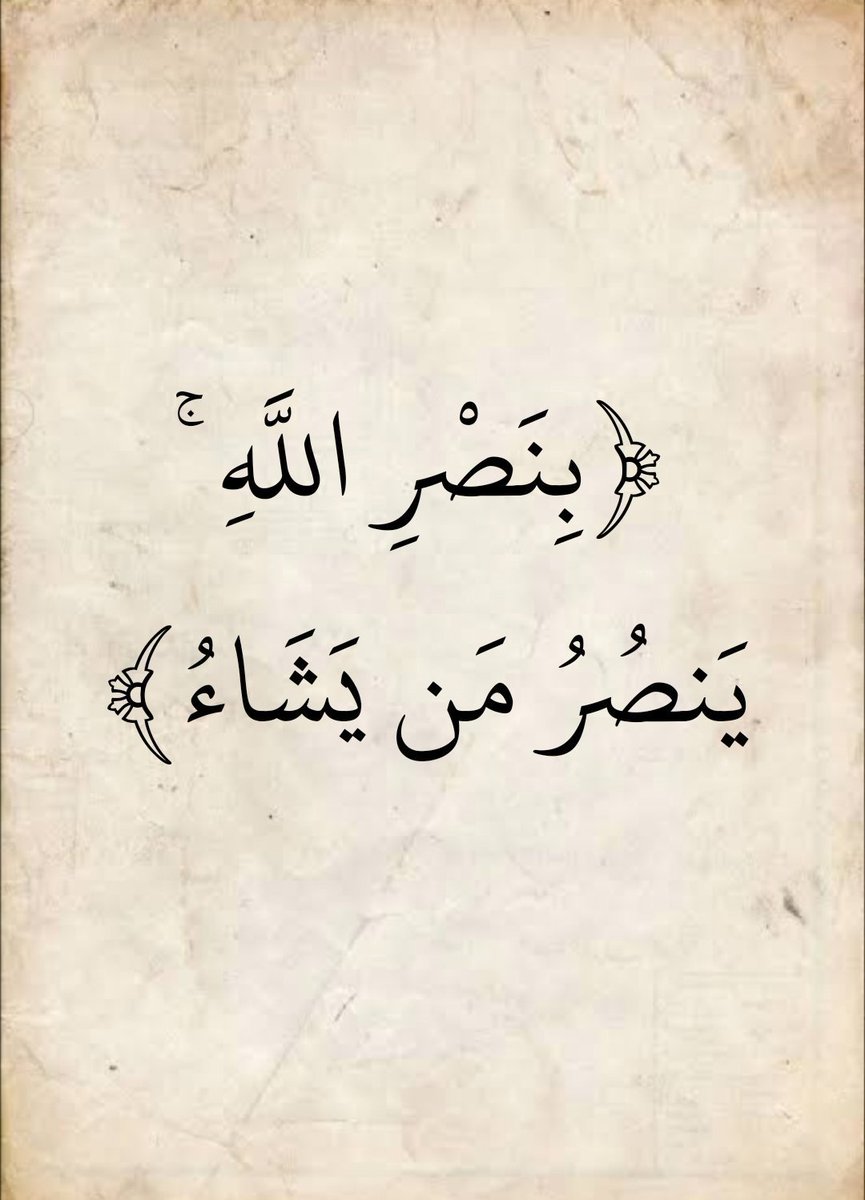 ﴿بِنَصْرِ اللَّهِ ۚ
يَنصُرُ مَن يَشَاءُ﴾